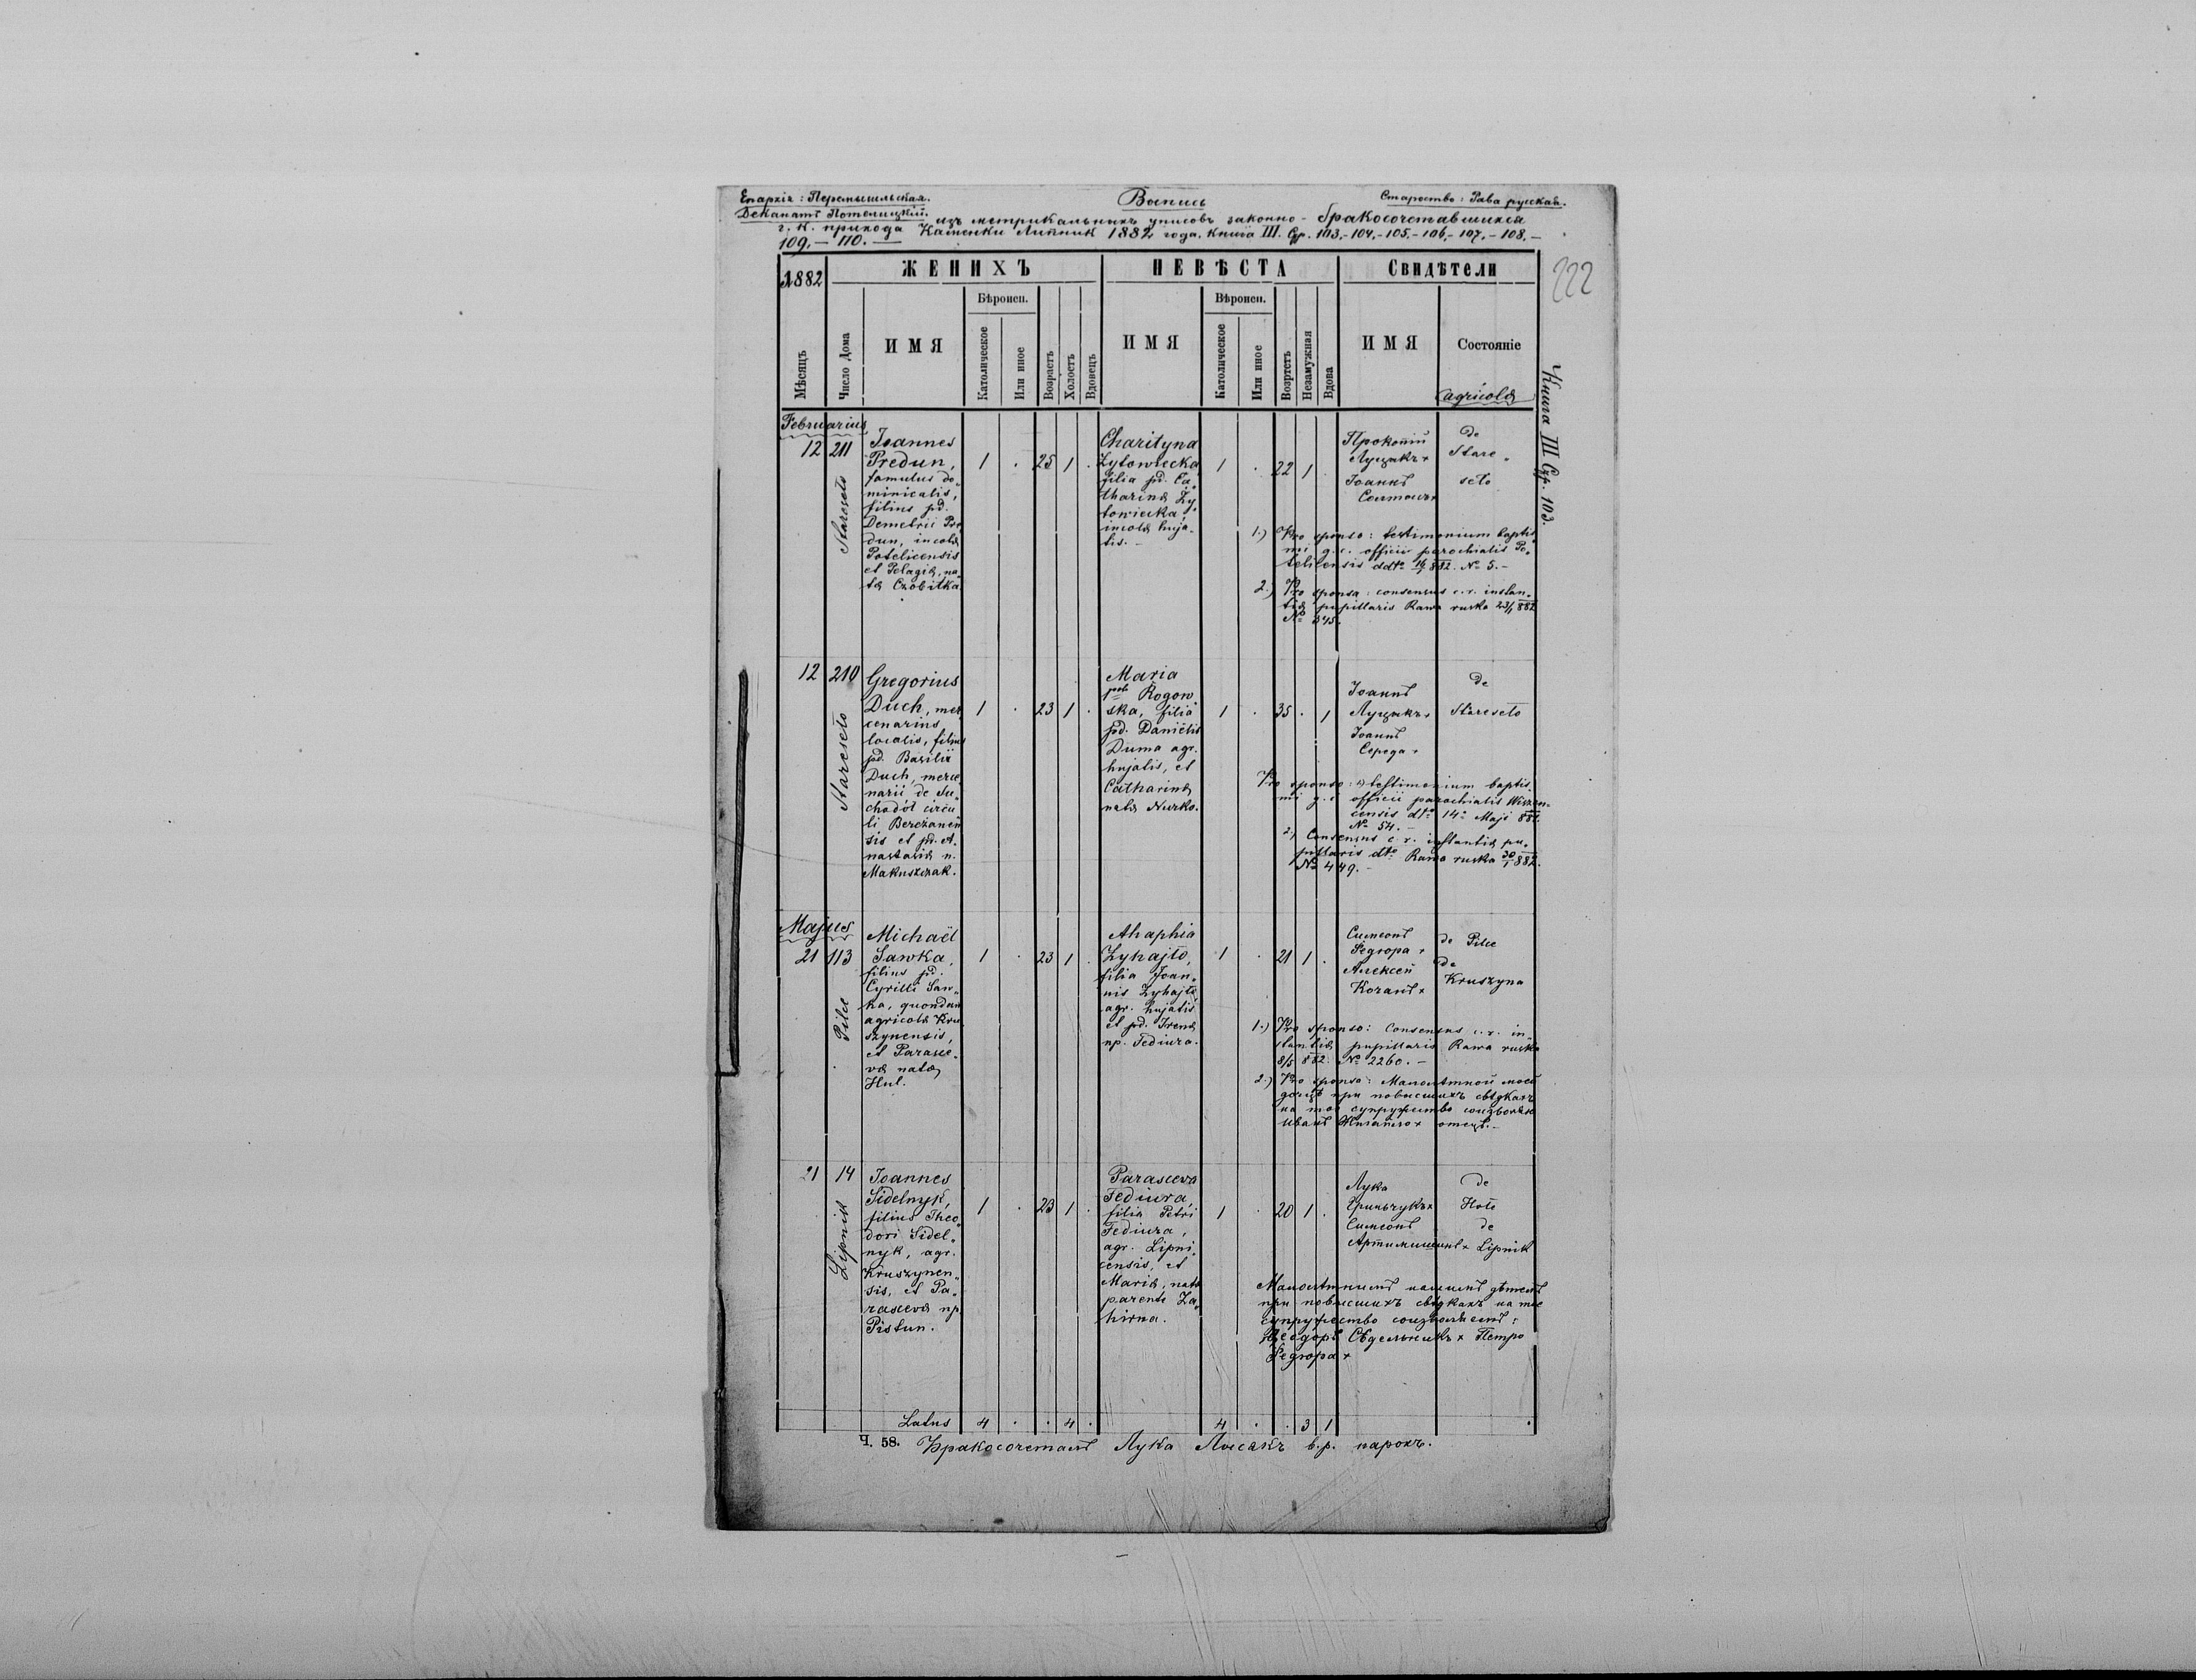 Епархія: Перемышльская.
Вопись
Староство: Рава русская.
Деканатъ Потелицкій.
изъ метрикальныхъ уписовъ законно - бракосочетавшихся
г. к. прихода Каменки Липник 1882 года. Книга III. Стр. 103,-104,-105.-106,-107,-108,-
109,- 110.-
222
Книга III Стр. 103.
1882
ЖЕНИХЪ
НЕВѢСТА
Свидѣтели
Мѣсяцъ
Число Дома
ИМЯ
Вѣроисп.
Католическое
Или иное
Возрастъ
Холостъ
Вдовецъ
ИМЯ
Вѣроисп.
Католическое
Или иное
Возрстъ
Незамужная
Вдова
ИМЯ
Состояніе
agricolæ
Februarius
12 211
Stareseto
Joannes
Predun,
famulus do„
minicalis,
filius pd.
Demetrii Pre
dun, incolæ
Potelicensis
et Pelagiæ, na„
tæ Czobitka.
1 . 25 1 .
Charityna
Żytowiecka
filia pd. Ca„
tharinæ Ży„
towiecka,
incolæ huja„
tis. -
1 . 22 1 .
Прокопій
Луцикъ+
Іоаннъ
de
Stare„
seto
1.) Pro sponso: testimonium baptis„
mi g. c. officii parochialis Po„
telicensis ddto 882. No 5.-
2.) Pro sponsa: consensus c. r. instan„
tiæ pupillaris Rawa ruska 23/1 882
No 345.
12 210
Stareseto
Gregorius
Duch, mer
cenarius
localis, filius
pd. Basilii
Duch, merce
narii de Su„
chodół circu
li Bereżanen
sis et pd. A„
nastasiæ n.
Makuszczak.
1 . 23 1 .
Maria
Rogow
ska, filia
pd. Danielis
Duma agr.
hujatis, et
Catharinæ
natæ Nurko.
1 . 35 . 1
Іоаннъ
Луцикъ+
Іоаннъ
Середа+
de
Stareseto
Pro sponso: testimonium baptis„
mi g. c. officii parochialis
censis dto 14 Maji 88
No 54. -
2.) Consensus c. r. instantiæ pu„
pillaris dto Rawa ruska 30/1 882.
No 449. -
Majus
21 113
Pilce
Michaël
Sawka,
filius pd.
Cyrilli Saw„
ka, quondam
agricolæ Kru
szynensis,
et Parasce„
væ natæ
Hul.
1 . 23 1 .
Ahaphia
Zyhajło,
filia Joan„
nis Zyhajło
agr. hujatis
et pd. Irenæ
np. Fediura.
1 . 21 1 .
Симеонъ
Федюра+
Алексей
Коганъ+
de Pilce
de
Kruszyna
1.) Pro sponso: Consensus c. r. in„
stantiæ pupillaris Rawa ruska
8/5 882. No 2260. -
2.) Pro sponsa: Малолѣтной моей
дочцѣ при повысшихъ свѣдкахъ
на тое супружество соизволяю
Иванъ Жигайло+ отецъ.-
21 14
Lipnik
Joannes
Sidelnyk,
filius Theo„
dori Sidel„
nyk, agr.
Kruszynen„
sis, et Pa„
rascevæ np.
Pistun.
1 . 23 1 .
Parasceva
Fediura,
filia Petri
Fediura,
agr. Lipni„
censis, et
Mariæ, natæ
parente Za„
hirna.
1 . 20 1 .
Лука
Гриньчукъ+
Симеонъ
Артимишинъ+
de
Hole
de
Lipnik
Малолѣтнымъ нашимъ дѣтемъ
при повысшихъ свѣдкахъ на тое
супружество соизволяемъ:
Ѳеодоръ Сѣдельникъ+ Петро
Федюра+
Latus 4 . . 4 . 4 . . 3 1
Ч. 58. Бракосочеталъ Лука Лысакъ в.р. парохъ.